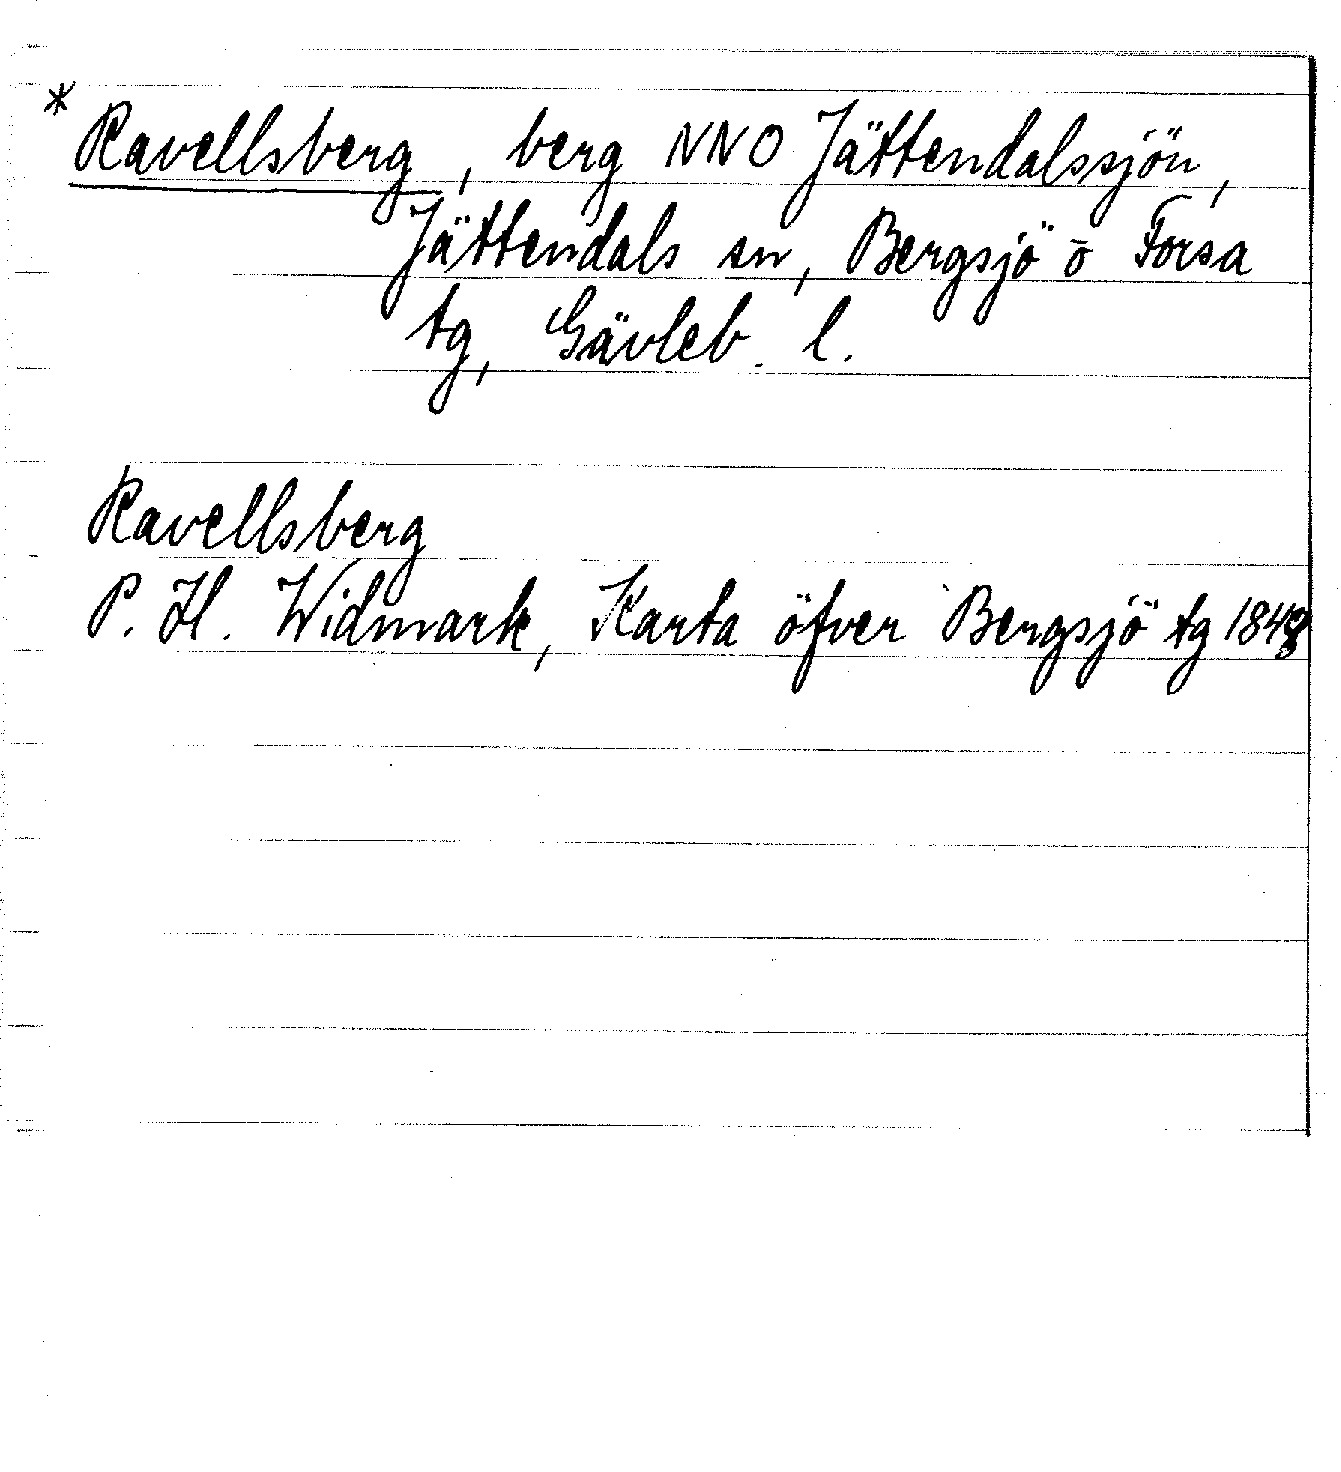 * Ravellsberg, berg NNO Jättendalssjön,
Jättendals sn, Bergsjö o Forsa
tg, Gävleb. l.
Ravellsberg
P. H. Widmark, Karta öfver Bergsjö tg 1848